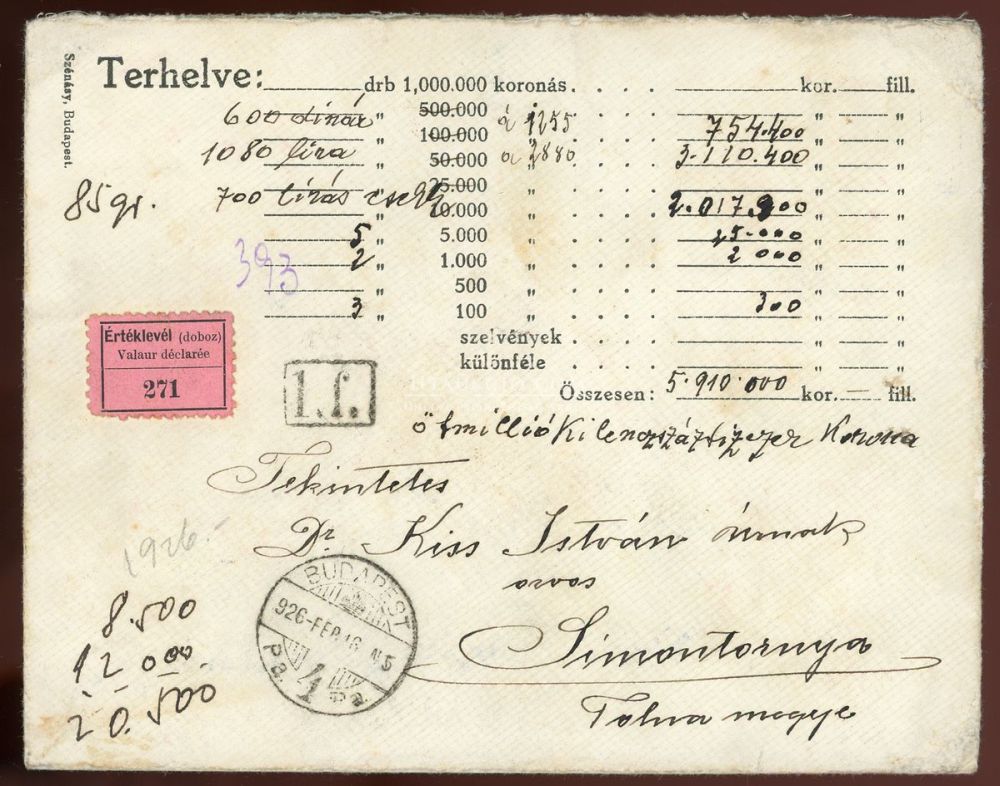 Szénásy, Budapest.
Terhelve: drb 1,000.000 koronás . . . . kor. fill.
600 dinár „ 500.000 á 1255 . . . . „ „
„ 100.000 754.400 „ „
1080 lira „ 50.000 á 2880 . . . . 3.110.400 „ „
„ 25.000 „ . . . . „ „
85 gr. 700 lirás csekk 10.000 „ . . . . 2.017.900 „ „
5 „ 5.000 „ . . . . 25.000 „ „
393 2 „ 1.000 „ . . . . 2000 „ „
„ 500 „ . . . . „ „
3 „ 100 „ . . . . 300 „ „
szelvények . . . . „ „
különféle . . . . „ „
Összesen: 5.910.000 kor. fill.
Értéklevél (doboz)
Valaur déclarée
271
1.f.
ötmilliókilencszáztizezer Korona
Tekintetes
Dr Kiss István úrnak
orvos
Simontornya
Tolna megye
1926.
8.500
12.000.
20.500
BUDAPEST
926-FEB.
4